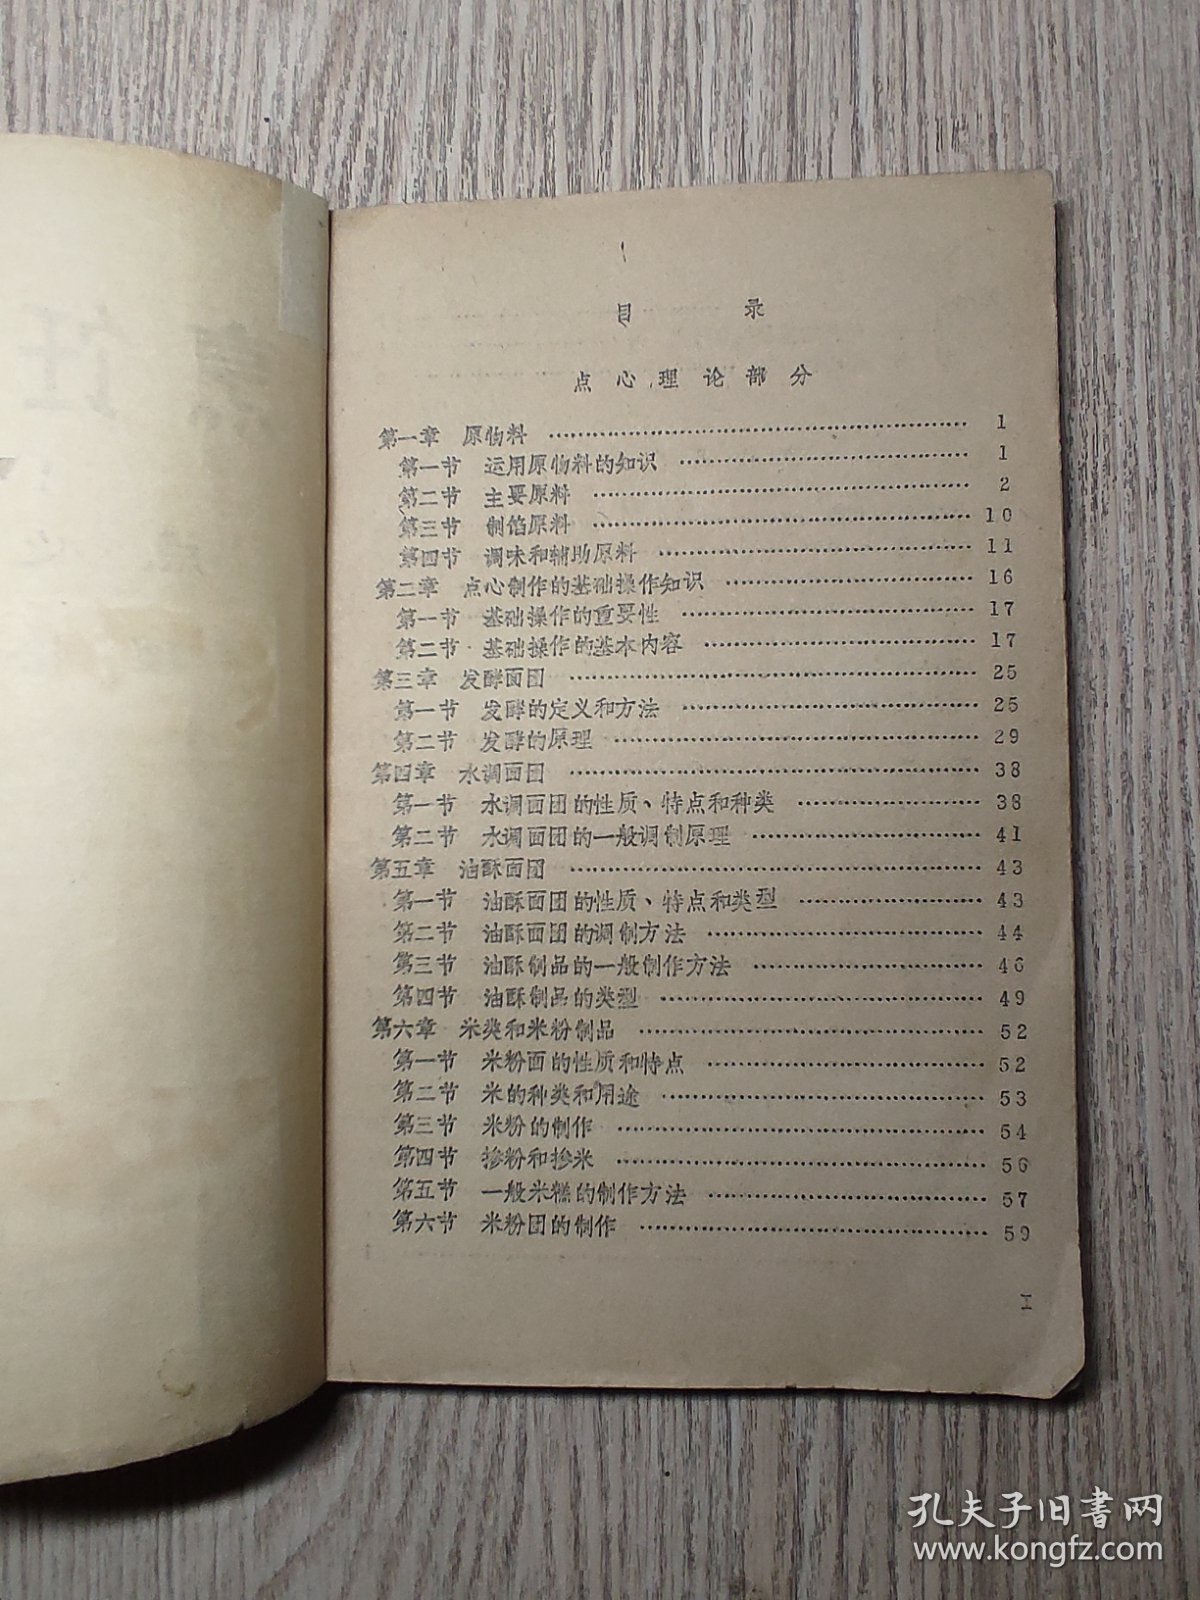 目 录
点心理论部分
第一章 原物料 …… 1
第一节 运用原物料的知识 …… 1
第二节 主要原料 …… 2
第三节 制馅原料 …… 10
第四节 调味和辅助原料 …… 11
第二章 点心制作的基础操作知识 …… 16
第一节 基础操作的重要性 …… 17
第二节 基础操作的基本内容 …… 17
第三章 发酵面团 …… 25
第一节 发酵的定义和方法 …… 25
第二节 发酵的原理 …… 29
第四章 水调面团 …… 38
第一节 水调面团的性质、特点和种类 …… 38
第二节 水调面团的一般调制原理 …… 41
第五章 油酥面团 …… 43
第一节 油酥面团的性质、特点和类型 …… 43
第二节 油酥面团的调制方法 …… 44
第三节 油酥制品的一般制作方法 …… 46
第四节 油酥制品的类型 …… 49
第六章 米类和米粉制品 …… 52
第一节 米粉面的性质和特点 …… 52
第二节 米的种类和用途 …… 53
第三节 米粉的制作 …… 54
第四节 掺粉和掺米 …… 56
第五节 一般米糕的制作方法 …… 57
第六节 米粉团的制作 …… 59
I
孔夫子旧書网
www.kongfz.com